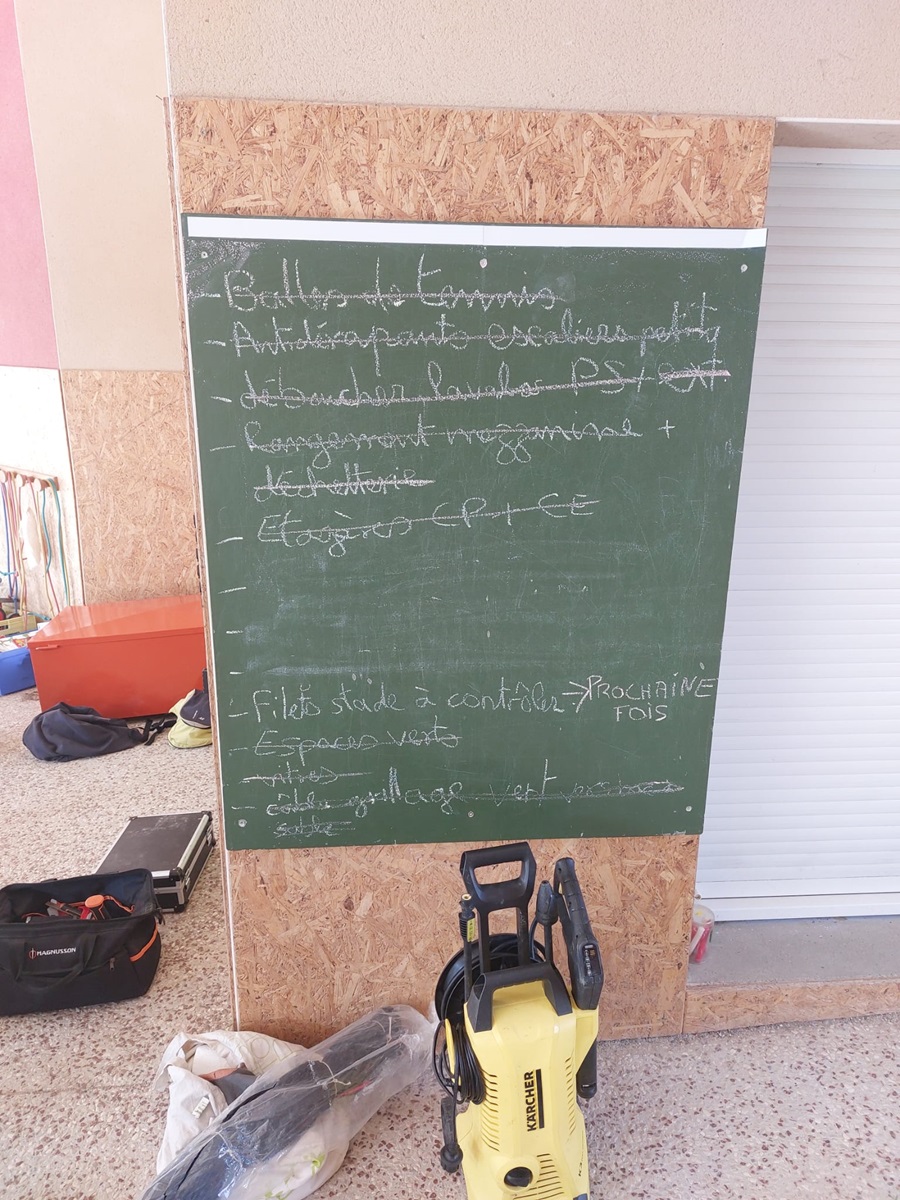 - Balles de tennis
- Antidérapants escaliers petits
- déboucher lavabos PS + EXT
- Rangement mezzanine +
déchetterie
- Etagères CP + CE
-
-
-
- Filets stade à contrôler → PROCHAINE
FOIS
- Espaces verts
- vitres
- câble grillage vert
sable
MAGNUSSON
KÄRCHER